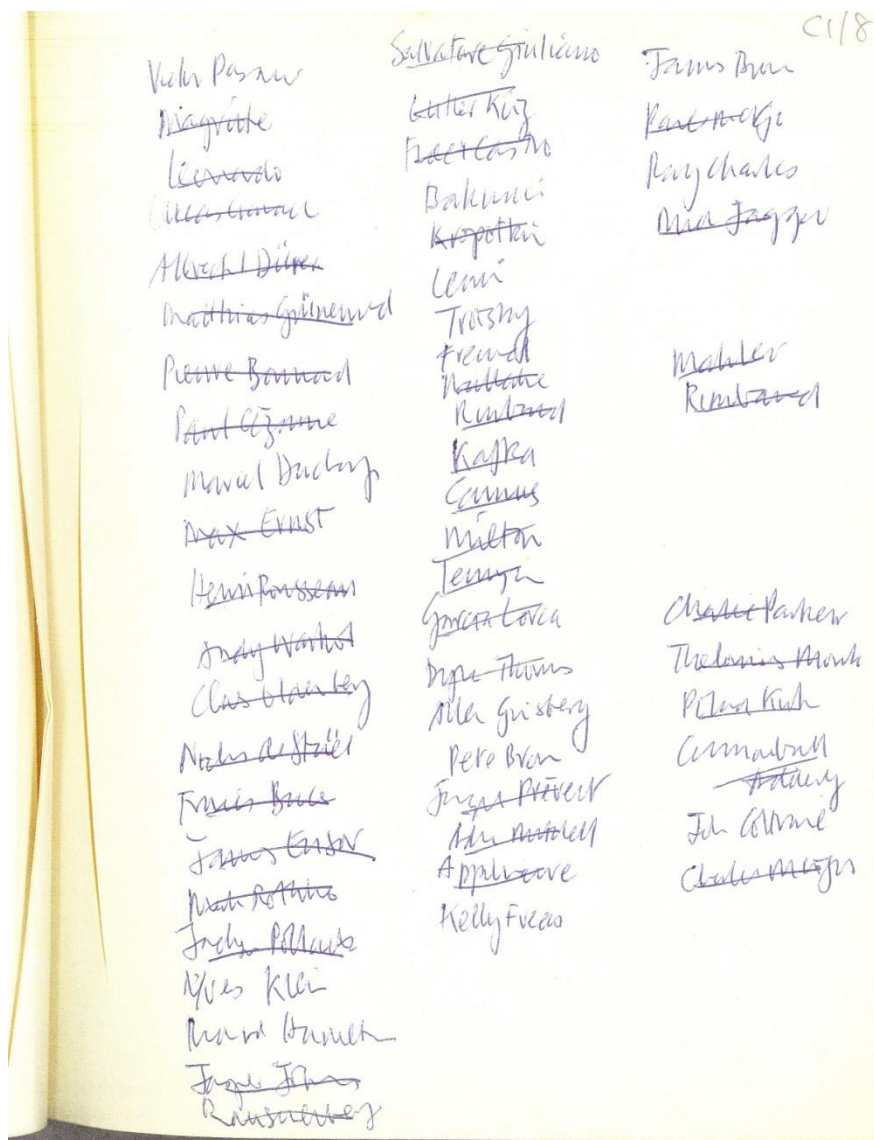 C1/8
Victor Pasmore
Magritte
Leonardo
Lucas Cranach
Albrecht Dürer
Matthias Grünewald
Pierre Bonnard
Paul Cézanne
Marcel Duchamp
Max Ernst
Henri Rousseau
Andy Warhol
Claes Oldenberg
Nicholas de Staël
Francis Bacon
James Ensor
Mark Rothko
Jackson Pollock
Yves Klein
Richard Hamilton
Jasper Johns
Rauschenberg
Salvatore Giuliano
Luther King
Fidel Castro
Bakunin
Kropotkin
Lenin
Trotsky
Freud
Rimbaud
Kafka
Camus
Milton
Tennyson
Garcia Lorca
Dylan Thomas
Allen Ginsberg
Pete Brown
Jacques Prévert
Adrian Mitchell
Appolinaire
Kelly Freas
James Brown
Ray Charles
Mick Jagger
Mahler
Rimbaud
Charlie Parker
Thelonius Monk
Roland Kirk
Cannonball
Adderley
John Coltrane
Charles Mingus